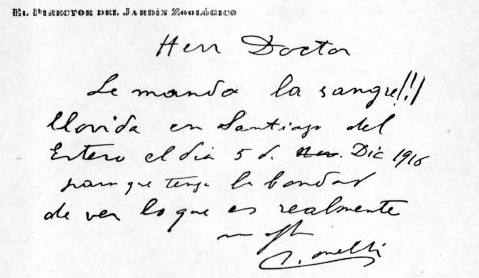 EL DIRECTOR DEL JARDÍN ZOOLÓGICO
Herr Doctor
Le mando la sangre!!!
llovida en Santiago del
Estero el día 5 d. Dic 1916
para que tenga la bondad
de ver lo que es realmente